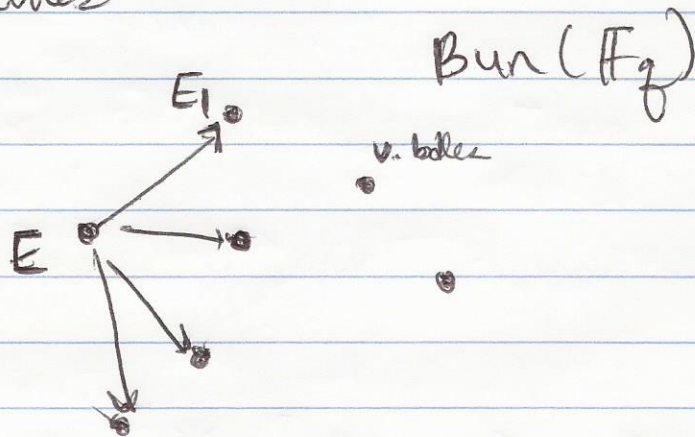 Bun(𝔽_q)
E₁
v. bdles
E